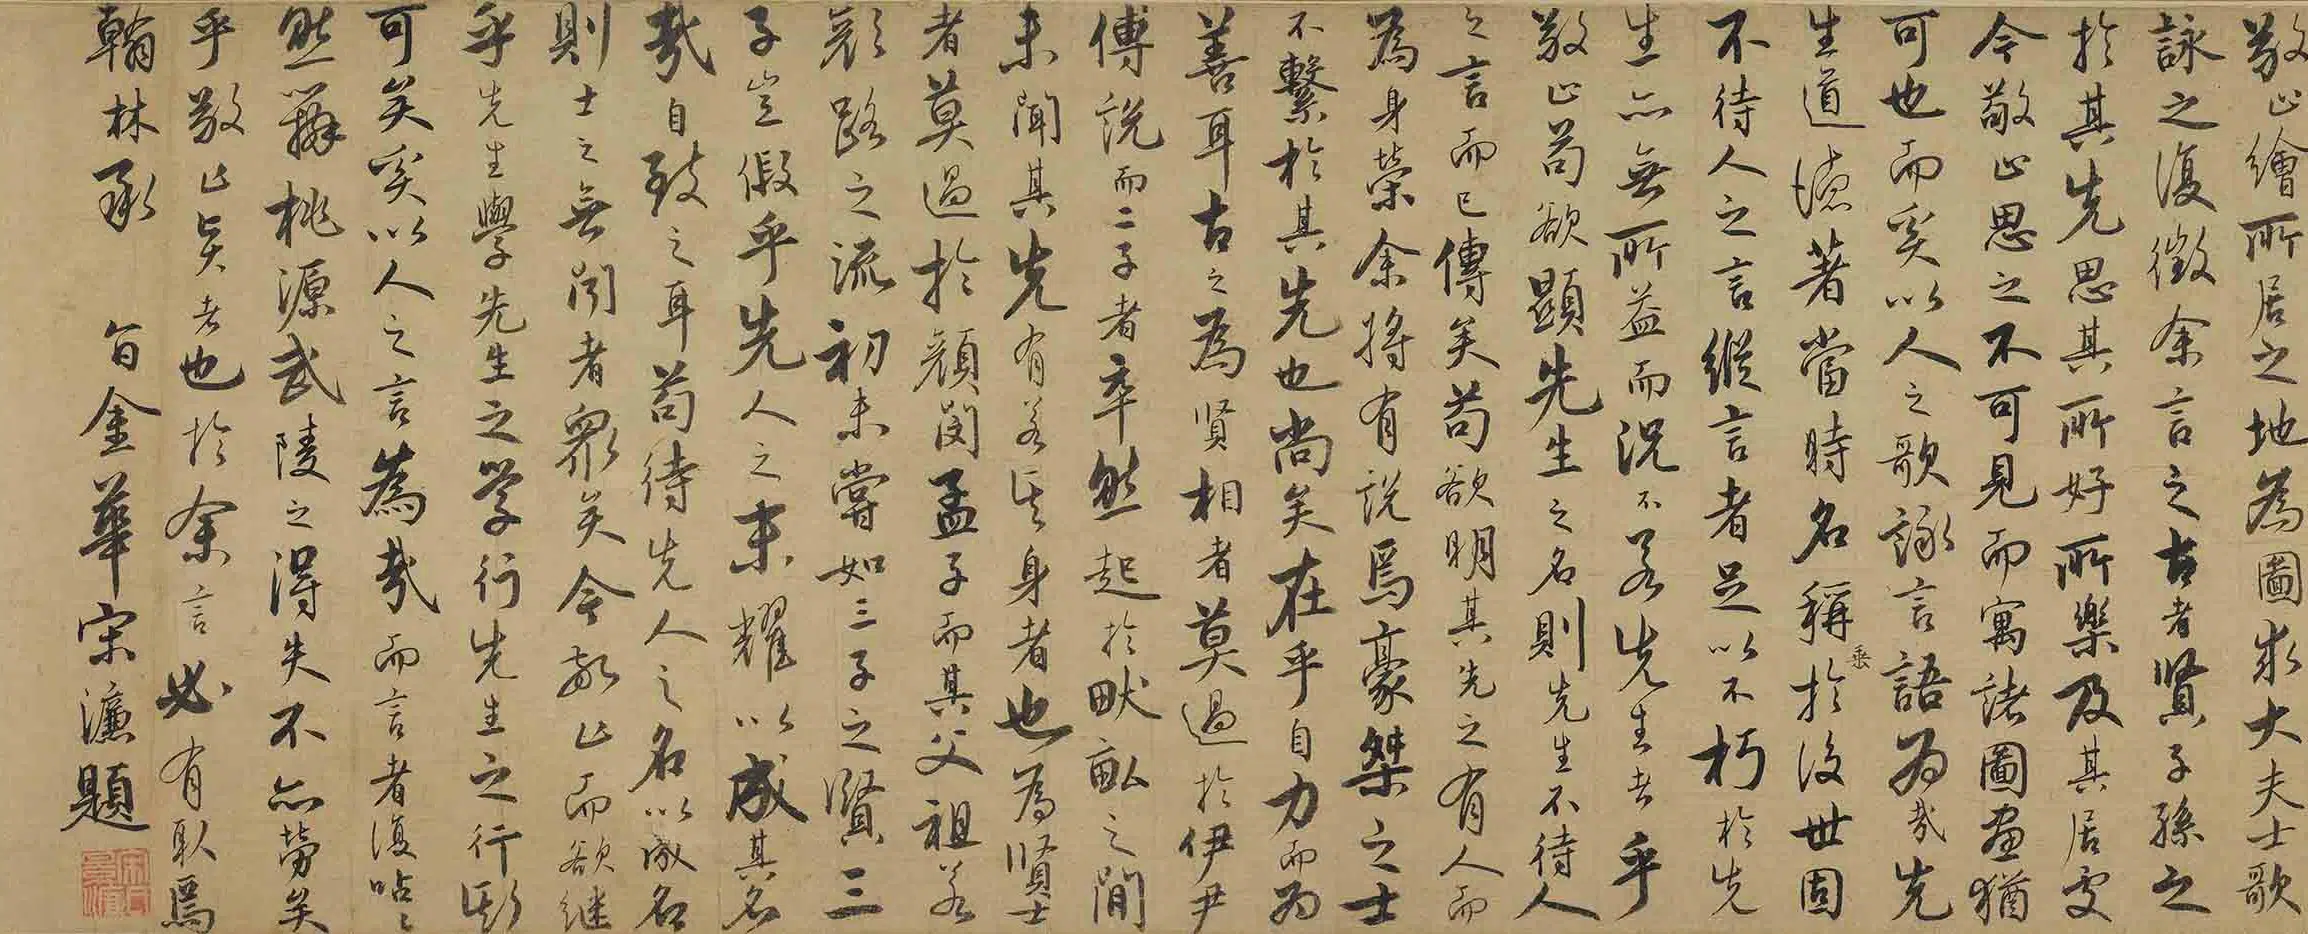 敬止繪所居之地為圖求大夫士歌
詠之復徵余言之古者賢子孫之
於其先思其所好所樂及其居處
今敬止思之不可見而寓諸圖畫猶
可也而奚以人之歌詠言語為哉先
生道德著當時名稱垂於後世固
不待人之言縱言者足以不朽於先
生亦無所益而況不若先生者乎
敬止苟欲顯先生之名則先生不待人
之言而已傳矣苟欲明其先之有人而
為身榮余將有說焉豪桀之士
不繫於其先也尚矣在乎自力而為
善耳古之為賢相者莫過於伊尹
傅說而二子者卒然起於畎畝之間
未聞其先有若其身者也為賢士
者莫過於顏閔孟子而其父祖若
顏路之流初未嘗如三子之賢三
子豈假乎先人之末耀以成其名
哉自致之耳苟待先人之名以成名
則士之無聞者眾矣今敬止而欲繼
乎先生學先生之學行先生之行斯
可矣奚以人之言為哉而言者復呫〻
然辯桃源武陵之得失不亦勞矣
乎敬止賢者也於余言必有取焉
翰林承 旨金華宋濂題